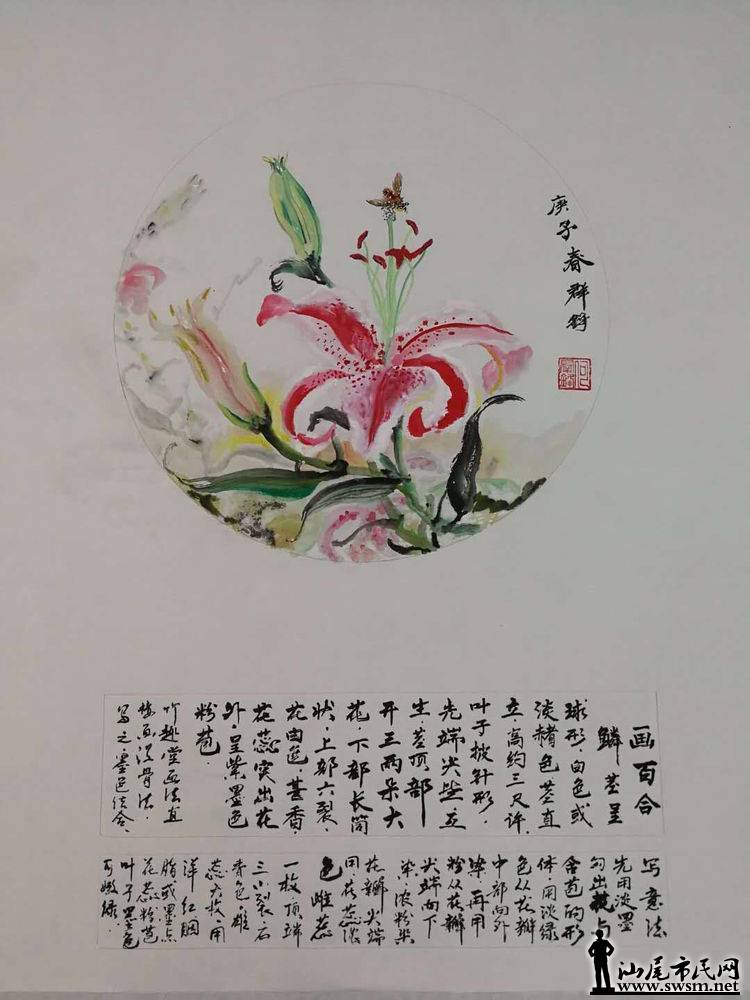 庚子春群
画百合
鳞茎呈
球形,白色或
淡赭色茎直
立,高约三尺许,
叶子披针形,
先端尖 互
生,茎顶部
开三两朵大
花,下部长筒
状,上部六裂,
花 色甚香,
花蕊突出花
外,呈紫墨色
粉苞.
竹趣堂画法直
接 没骨法,
写之,墨色结合.
写意法
先用淡墨
勾出花与
含苞的形
体,用淡绿
色从花瓣
中部向外
染,再用
粉从花瓣
尖端向下
染,浓粉染
花瓣尖端
同,花蕊浓
色雌蕊
一枚,顶端
三小裂,石
青色,雄
蕊六枚,用
洋红胭
脂或墨点
花蕊粉苞
叶子墨色
可嫩绿.
汕尾市民网
www.swsm.net